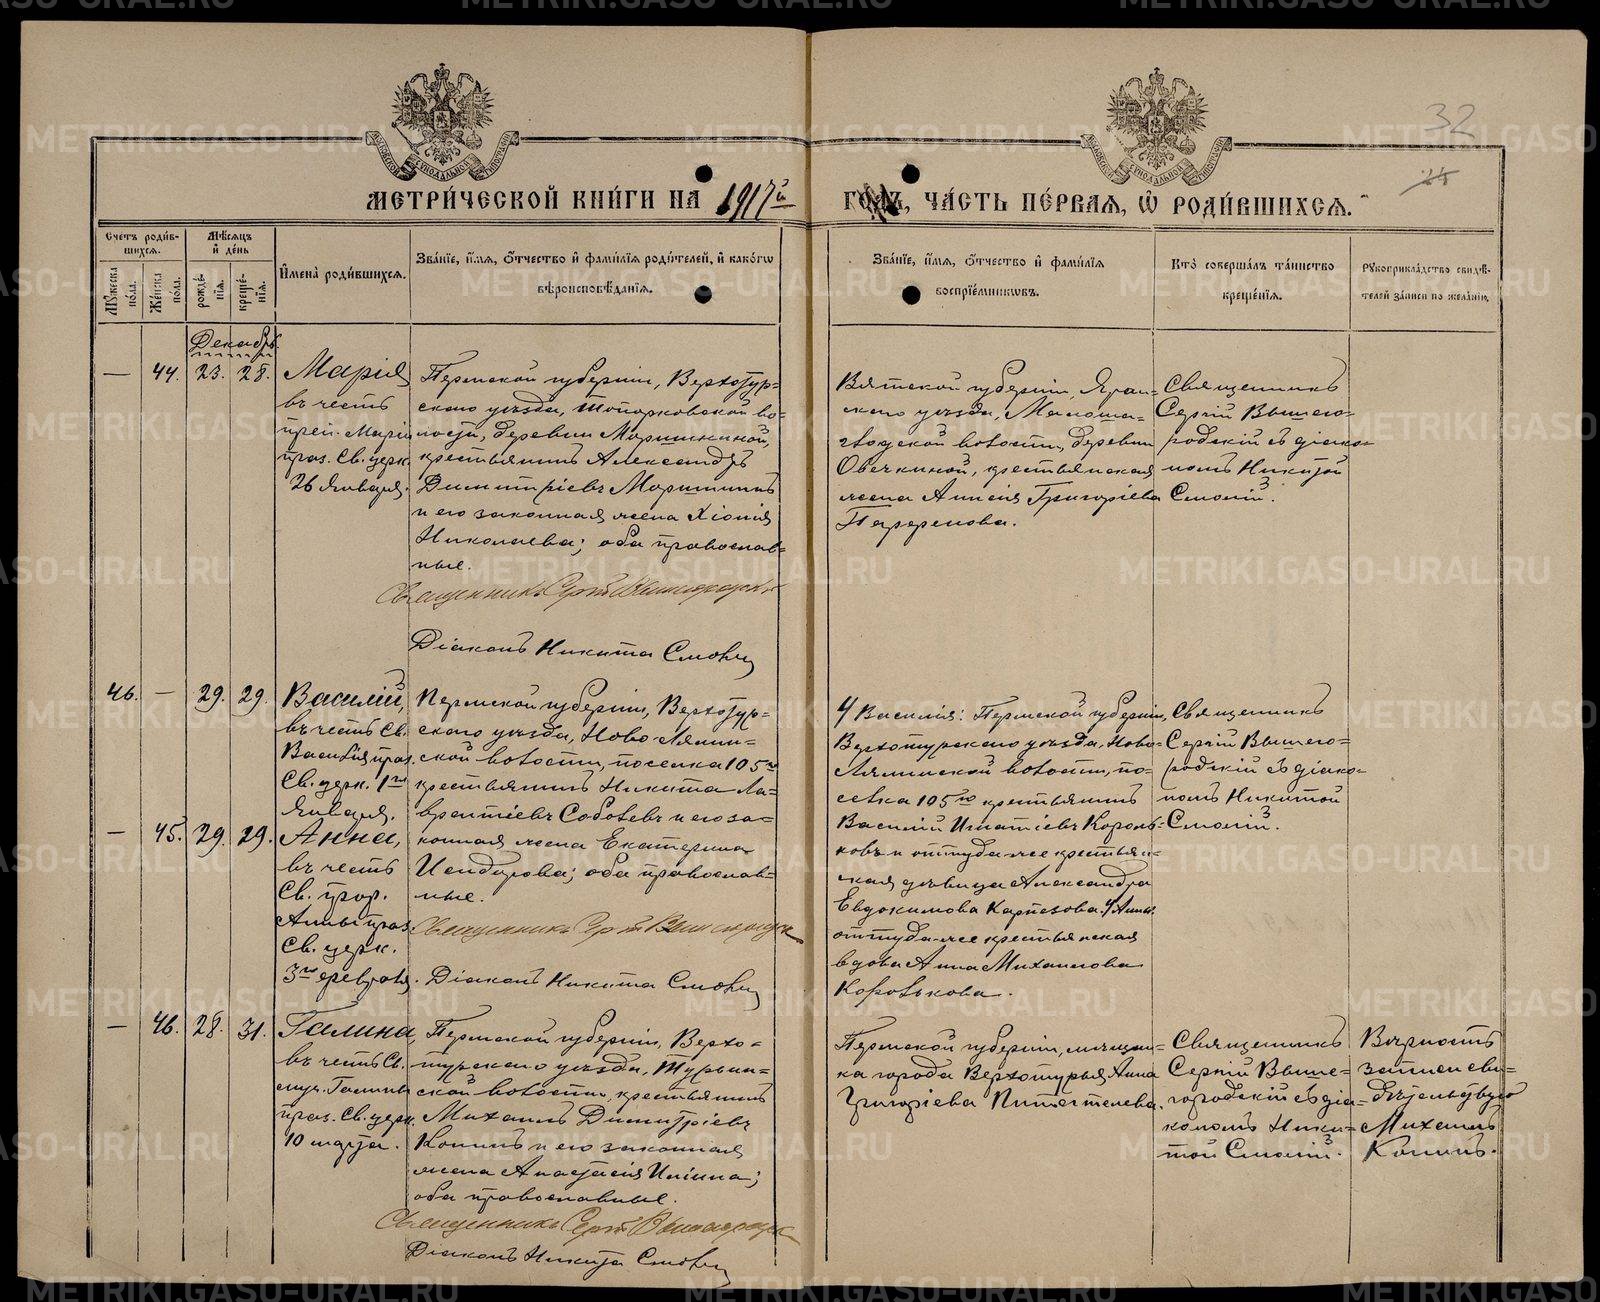 МЕТРИ́ЧЕСКОЙ КНИ́ГИ НА 1917й ГОДЪ, ЧА́СТЬ ПЕ́РВАЯ, Ѡ РОДИ́ВШИХСЯ.
32
Счетъ роди́в-
шихся.
Мужеска по́ла.
Же́нска по́ла.
Мѣ́сяцъ
и҆ де́нь
рожде́-
нїя.
креще́-
нїя.
И҆мена̀ роди́вшихся.
Зва́нїе, и҆́мя, ѻ҆́тчество и҆ фами́лїя роди́телей, и҆ како́гѡ
вѣроисповѣ́данїя.
Зва́нїе, и҆́мя, ѻ҆́тчество и҆ фами́лїя
воспрїе́мникѡвъ.
Кто̀ соверша́лъ та́инство
креще́нїя.
Рукоприкла́дство свидѣ́-
телей за́писи по жела́нїю.
Декабрь
— 44. 23. 28.
Марія
въ честь
преп. Маріи
праз. Св. церк.
26 Января.
Пермской губерніи, Верхотур-
скаго уѣзда, Топорковской во-
лости, деревни Моршининой,
крестьянинъ Александръ
Димитріевъ Моршининъ
и его законная жена Хіонія
Николаева; оба православ-
ные.
Священникъ Сергій Вышегородскій
Діаконъ Никита Смолин
Вятской губерніи, Яран-
скаго уѣзда, Малоша-
лгодской волости, деревни
Овечкиной, крестьянская
жена Анисія Григоріева
Священникъ
Сергій Вышего-
родскій съ діако-
номъ Никитой
46. — 29. 29.
Василій,
въ честь Св.
Василія праз.
Св. церк. 1го
Января.
Пермской губерніи, Верхотур-
скаго уѣзда, Ново-Лялин-
ской волости, поселка 105го
крестьянинъ Никита Ла-
врентіевъ Соболевъ и его за-
конная жена Екатерина
оба православ-
ные.
Священникъ Сергій Вышегородскій
Діаконъ Никита Смолин
— 45. 29. 29.
Анна,
въ честь
Св. прор.
Анны праз.
Св. церк.
3го февраля.
У Василія: Пермской губерніи,
Верхотурскаго уѣзда, Ново-
Лялинской волости, по-
селка 105го крестьянинъ
Василій Игнатіевъ Король-
ковъ и оттуда-же крестьян-
ская дѣвица Александра
Евдокимова Карпезова. У Анны:
оттуда-же крестьянская
вдова Анна Михаилова
Королькова.
Священникъ
Сергій Вышего-
родскій съ діако-
номъ Никитой
— 46. 28. 31.
Галина,
въ честь Св.
муч. Галины
праз. Св. церк.
10 марта.
Пермской губерніи, Верхо-
турскаго уѣзда, Турьин-
ской волости, крестьянинъ
Михаилъ Димитріевъ
Копинъ и его законная
жена Анастасія Ильина;
оба православные.
Священникъ Сергій Вышегородскій
Діаконъ Никита Смолин
Пермской губерніи, мѣщан-
ка города Верхотурья Анна
Григоріева
Священникъ
Сергій Выше-
городскій съ діа-
кономъ Ники-
той
Вѣрность
записи сви-
дѣтельствую
Михаилъ
Копинъ.
METRIKI.GASO-URAL.RU